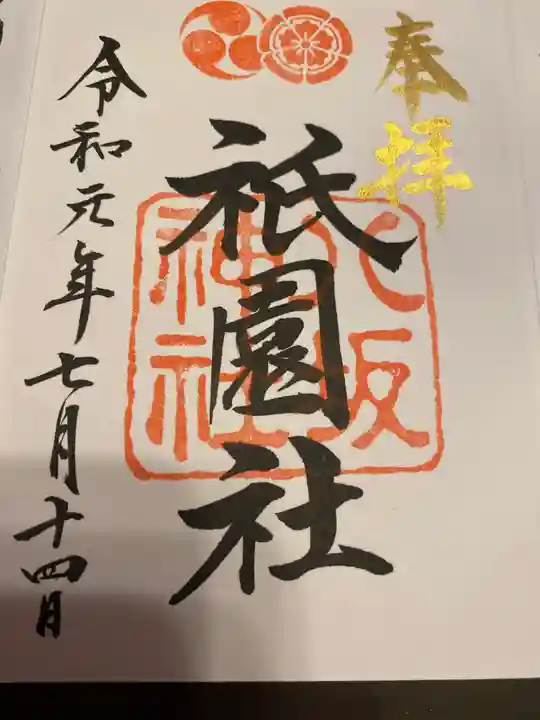 奉拝
八坂
神社
祇園社
令和元年七月十四日